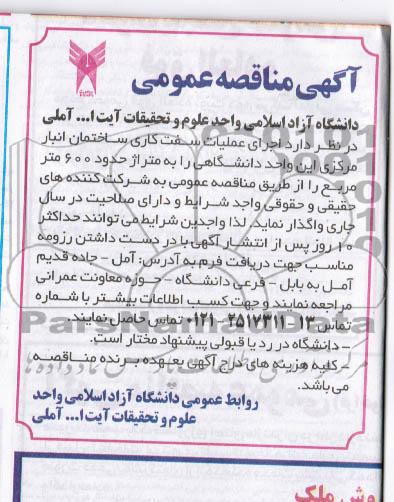 آگهی مناقصه عمومی
دانشگاه آزاد اسلامی واحد علوم و تحقیقات آیت ا... آملی
در نظر دارد اجرای عملیات سفت کاری ساختمان انبار
مرکزی این واحد دانشگاهی را به متراژ حدود ۶۰۰ متر
مربع را از طریق مناقصه عمومی به شرکت کننده های
حقیقی و حقوقی واجد شرایط و دارای صلاحیت در سال
جاری واگذار نماید. لذا واجدین شرایط می توانند حداکثر
۱۰ روز پس از انتشار آگهی با در دست داشتن رزومه
مناسب جهت دریافت فرم به آدرس: آمل - جاده قدیم
آمل به بابل - فرعی دانشگاه - حوزه معاونت عمرانی
مراجعه نمایند و جهت کسب اطلاعات بیشتر با شماره
تماس ۱۳-۲۵۱۷۳۱۱-۰۱۲۱ تماس حاصل نمایند.
- دانشگاه در رد یا قبولی پیشنهاد مختار است.
- کلیه هزینه های درج آگهی بعهده برنده مناقصه
می باشد.
روابط عمومی دانشگاه آزاد اسلامی واحد
علوم و تحقیقات آیت ا... آملی
ParsNamadData
وش ملک